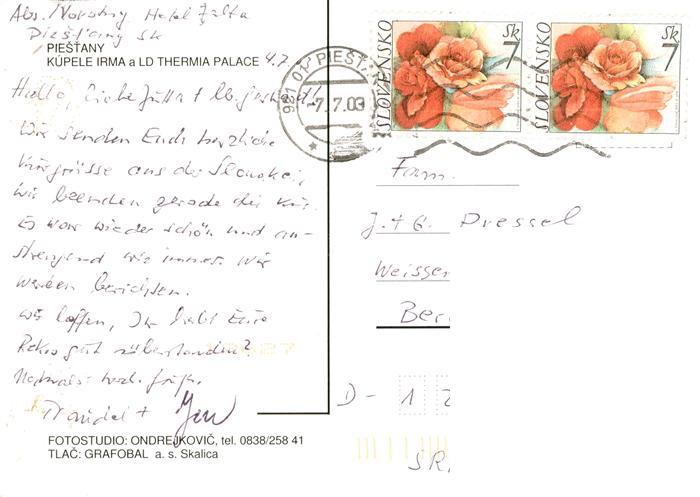 Abs. Novotny Hotel Jalta
Piešťany Sk
PIEŠŤANY
KÚPELE IRMA a LD THERMIA PALACE 4.7.
Hallo, Liebe Jutta +
Wir senden Euch herzliche
Kurgrüsse aus der Slowakei,
wir beenden gerade die Kur.
Es war wieder schön und an-
strengend wie immer. Wir
werden berichten.
Wir hoffen, Ihr habt Eure
Reko gut überstanden?
Nochmals herzl. Grüße
Traudel +
FOTOSTUDIO: ONDREJKOVIČ, tel. 0838/258 41
TLAČ: GRAFOBAL a. s. Skalica
921 01 PIEŠŤ
-7.7.03
SLOVENSKO
Sk
7
SLOVENSKO
Sk
7
Fam.
J. + G. Dressel
Weisser
Ber
D - 1 2
SR.